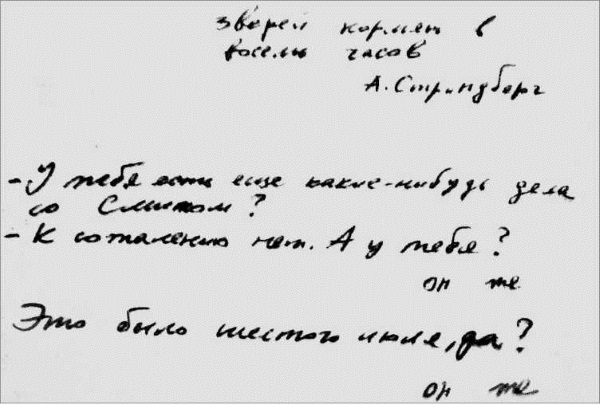 зверей кормят в
восемь часов
А. Стриндберг
- У тебя есть еще какие-нибудь дела
со Смитом?
- К сожалению нет. А у тебя?
он же
Это было шестого июля, да?
он же